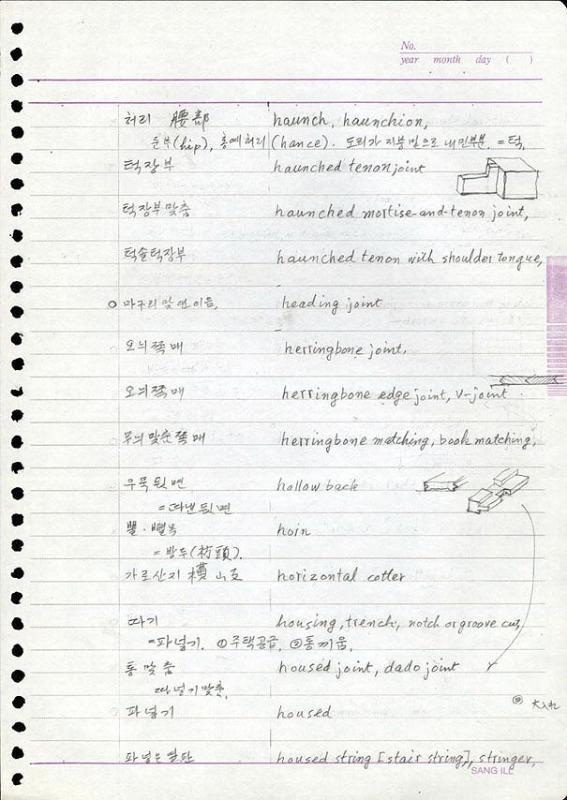 No.
year month day ( )
허리 腰部 haunch, haunchion,
(hip), 허리 (chance). 도리가 지붕 밑으로 내민부분. = 턱,
턱장부 haunched tenon joint
턱장부맞춤 haunched mortise-and-tenon joint,
턱솔턱장부 haunched tenon with shoulder tongue,
마구리 맞댄이음, heading joint
오늬쪽매 herringbone joint,
오늬쪽매 herringbone edge joint, V-joint
무늬맞춘쪽매 herringbone matching, book matching,
우묵뒷면 hollow back
= 따낸뒷면
뺄·뺄목 hoin
= 방두(桁頭).
가로산지 horizontal cotter
따기 housing, trench, notch or groove cut,
= 파넣기. ① 주택공급. ② 통끼움.
통맞춤 housed joint, dado joint
따넣기맞춤,
파넣기 housed
⑨ 大入れ
파넣은 housed string [stair string], stringer,
SANG ILL